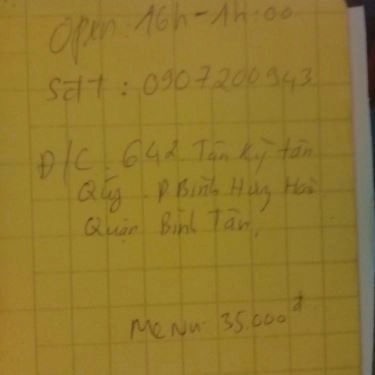 Open: 16h - 1h.00
Sđt : 0907200943.
Đ/C. 642. Tân Kỳ tân
Qúy. P Bình Hưng Hoà
Quận Bình Tân.
MeNu. 35.000đ